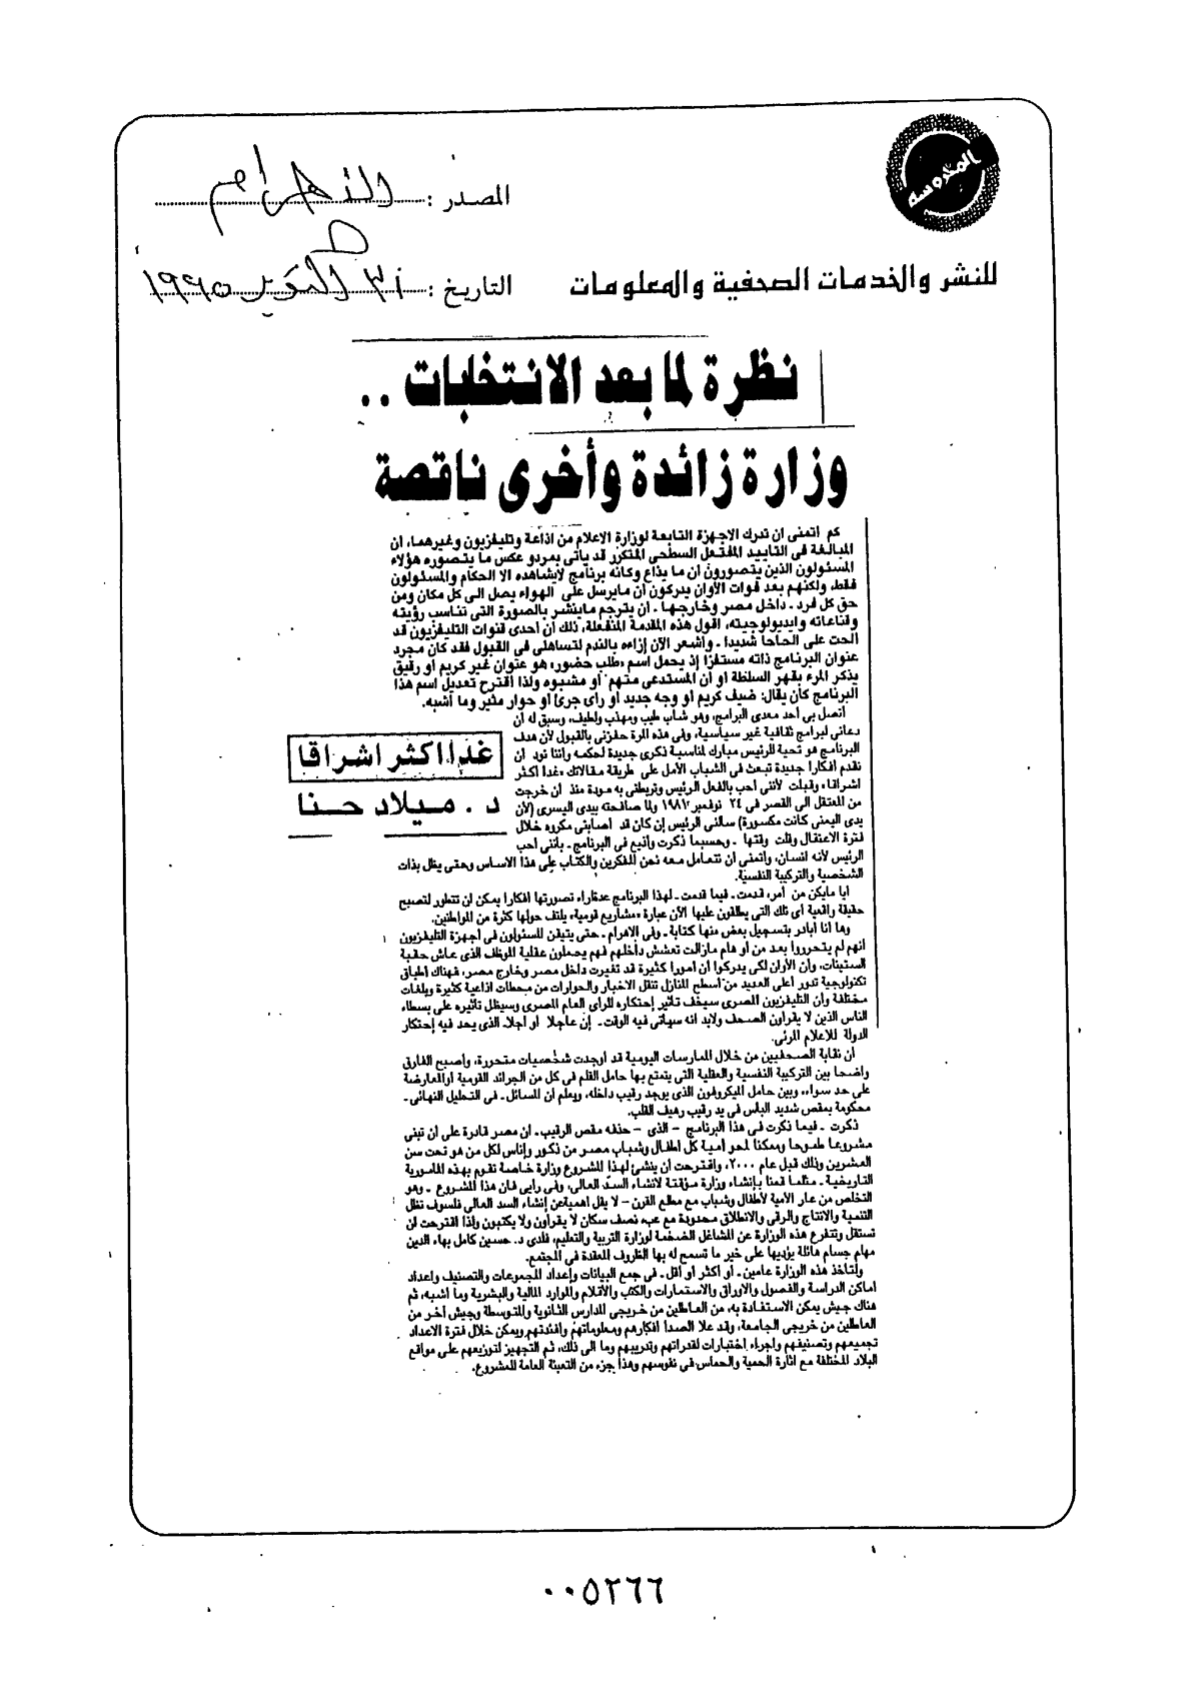 المحروسة
المصدر : الأهرام
للنشر والخدمات الصحفية والمعلومات
التاريخ : ٣٠ أكتوبر ١٩٩٥
نظرة لما بعد الانتخابات ..
وزارة زائدة وأخرى ناقصة
كم اتمنى ان تدرك الاجهزة التابعة لوزارة الاعلام من اذاعة وتليفزيون وغيرهما، ان
المبالغة فى التاييد المفتعل السطحى المتكرر قد ياتى بمردو عكس ما يتصوره هؤلاء
المسئولون الذين يتصورون ان ما يذاع وكانه برنامج لايشاهده الا الحكام والمسئولون
فقط، ولكنهم بعد فوات الأوان يدركون ان مايرسل على الهواء يصل الى كل مكان ومن
حق كل فرد ـ داخل مصر وخارجها ـ ان يترجم ماينشر بالصورة التى تناسب رؤيته
وقناعاته وايديولوجيته، اقول هذه المقدمة المنفعلة، ذلك ان احدى قنوات التليفزيون قد
الحت على الحاحا شديدا ـ واشعر الآن إزاءه بالندم لتساهلى فى القبول فقد كان مجرد
عنوان البرنامج ذاته مستفزا إذ يحمل اسم «طلب حضور» هو عنوان غير كريم او رقيق
يذكر المرء بقهر السلطة او ان المستدعى متهم او مشبوه ولذا اقترح تعديل اسم هذا
البرنامج كأن يقال: ضيف كريم او وجه جديد او راى جرئ او حوار مثير وما أشبه.
اتصل بى أحد معدى البرامج، وهو شاب طيب ومهذب ولطيف، وسبق له ان
دعانى لبرامج ثقافية غير سياسية، وفى هذه المرة حفزنى بالقبول لأن هدف
البرنامج هو تحية للرئيس مبارك لمناسبة ذكرى جديدة لحكمه واننا نود ان
نقدم افكارا جديدة تبعث فى الشباب الأمل على طريقة مقالاتك «غدا أكثر
اشراقا» وقبلت لأننى احب بالفعل الرئيس وتربطنى به مودة منذ ان خرجت
من المعتقل الى القصر فى ٢٤ نوفمبر ١٩٨١ ولما صافحته بيدى اليسرى (لأن
يدى اليمنى كانت مكسورة) سألنى الرئيس إن كان قد اصابنى مكروه خلال
فترة الاعتقال وقلت وقتها ـ وحسبما ذكرت وأذيع فى البرنامج ـ بأننى احب
غدا اكثر اشراقا
د . ميلاد حنا
الرئيس لأنه انسان، وأتمنى أن نتعامل معه نحن المفكرين والكتاب على هذا الاساس وحتى يظل بذات
الشخصية والتركيبة النفسية.
ايا مايكن من أمر، قدمت ـ فيما قدمت ـ لهذا البرنامج عدة اراء، تصورتها افكارا يمكن ان تتطور لتصبح
حقيقة واقعية اى تلك التى يطلقون عليها الآن عبارة «مشاريع قومية» يلتف حولها كثرة من المواطنين.
وها انا أبادر بتسجيل بعض منها كتابة ـ وفى الاهرام ـ حتى يتيقن المسئولون فى أجهزة التليفزيون
أنهم لم يتحرروا بعد من أوهام مازالت تعشش داخلهم فهم يحملون عقلية الموظف الذى عاش حقبة
الستينات، وأن الأوان لكى يدركوا أن امورا كثيرة قد تغيرت داخل مصر وخارج مصر، فهناك اطباق
تكنولوجية تدور أعلى العديد من أسطح المنازل تنقل الاخبار والحوارات من محطات اذاعية كثيرة وبلغات
مختلفة وأن التليفزيون المصرى سيخف تاثير إحتكاره للراى العام المصرى وسيظل تاثيره على بسطاء
الناس الذين لا يقراون الصحف ولابد انه سيأتى فيه الوقت ـ إن عاجلا او آجلا ـ الذى يحد فيه إحتكار
الدولة للاعلام المرئى.
ان نقابة الصحفيين من خلال الممارسات اليومية قد أوجدت شخصيات متحررة، وأصبح الفارق
واضحا بين التركيبة النفسية والعقلية التى يتمتع بها حامل القلم فى كل من الجرائد القومية اوالمعارضة
على حد سواء، وبين حامل الميكروفون الذى يوجد رقيب داخله، ويعلم ان المسائل ـ فى التحليل النهائى ـ
محكومة بمقص شديد الباس فى يد رقيب رهيف القلب.
ذكرت ـ فيما ذكرت فى هذا البرنامج ـ الذى ـ حذفه مقص الرقيب ـ ان مصر قادرة على أن تبنى
مشروعا طموحا وممكنا لمحو امية كل اطفال وشباب مصر من ذكور وإناس لكل من هو تحت سن
العشرين وذلك قبل عام ٢٠٠٠، واقترحت أن ينشئ لهذا المشروع وزارة خاصة تقوم بهذه المامورية
التاريخية ـ مثلما قمنا بإنشاء وزارة مؤقتة لانشاء السد العالى، وفى رايى فان هذا المشروع ـ وهو
التخلص من عار الأمية لأطفال وشباب مع مطلع القرن ـ لا يقل اهمية عن إنشاء السد العالى فلسوف تظل
التنمية والانتاج والرقى والانطلاق محدودة مع عبء نصف سكان لا يقراون ولا يكتبون ولذا اقترحت ان
تستقل وتتفرغ هذه الوزارة عن المشاغل الضخمة لوزارة التربية والتعليم، فلدى د. حسين كامل بهاء الدين
مهام جسام هائلة يؤديها على خير ما تسمح له بها الظروف المعقدة فى المجتمع.
ولتاخذ هذه الوزارة عامين ـ أو اكثر أو أقل ـ فى جمع البيانات وإعداد المجموعات والتصنيف واعداد
اماكن الدراسة والفصول والاوراق والاستمارات والكتب والأقلام والموارد المالية والبشرية وما أشبه، ثم
هناك جيش يمكن الاستفادة به، من العاطلين من خريجى المدارس الثانوية والمتوسطة وجيش آخر من
العاطلين من خريجى الجامعة، وقد علا الصدا أفكارهم ومعلوماتهم وافئدتهم ويمكن خلال فترة الاعداد
تجميعهم وتصنيفهم واجراء إختبارات لقدراتهم وتدريبهم وما الى ذلك، ثم التجهيز لتوزيعهم على مواقع
البلاد المختلفة مع اثارة الحمية والحماس فى نفوسهم وهذا جزء من التعبئة العامة للمشروع.
٠٠٥٢٦٦